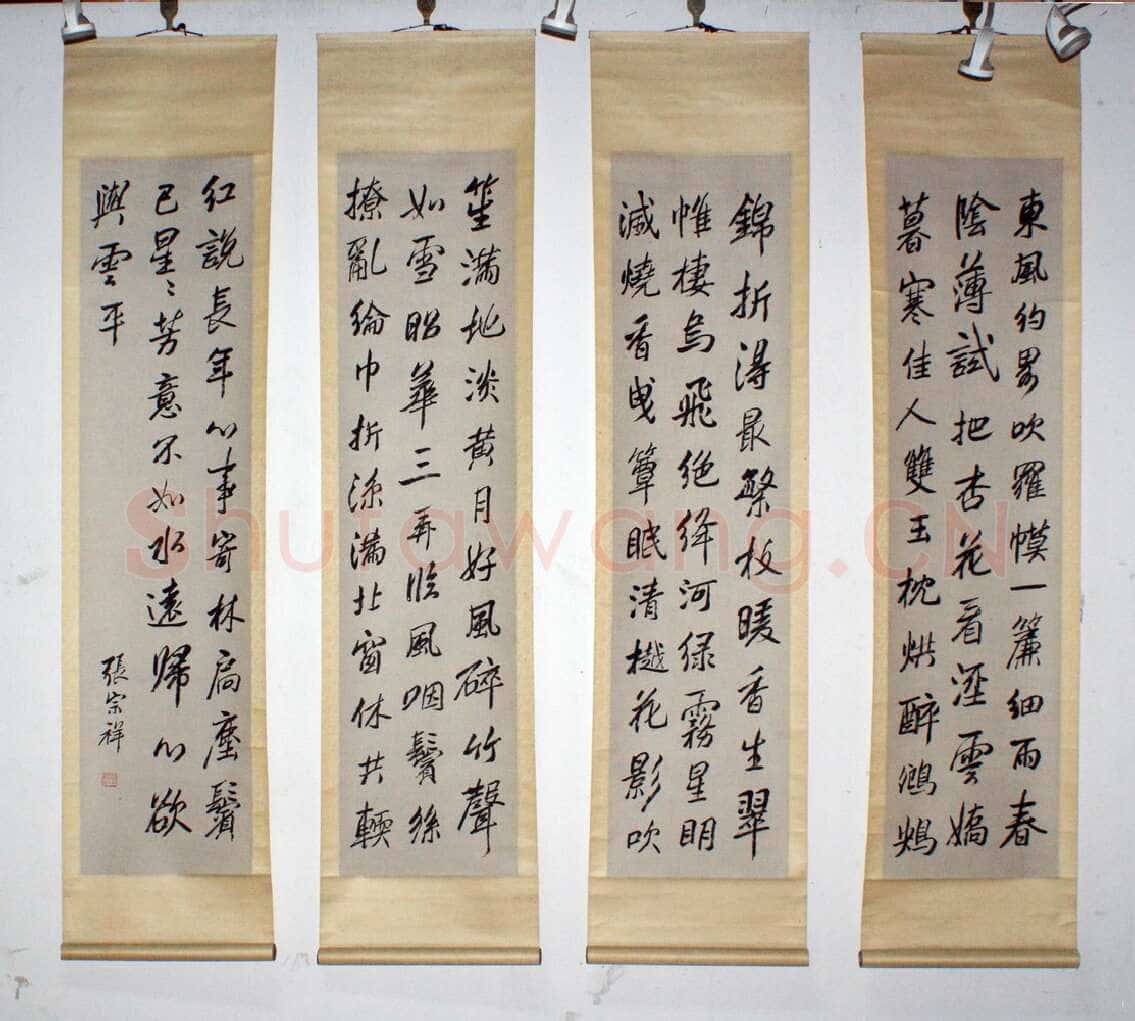 東風約畧吹羅幙一簾細雨春
陰薄試把杏花看溼雲嬌
暮寒佳人雙玉枕烘醉鴛鴦
錦折得最繁枝暖香生翠
帷棲烏飛絕絳河綠霧星明
滅燒香曳簟眠清樾花影吹
笙滿地淡黃月好風碎竹聲
如雪昭華三弄臨風咽鬢絲
撩亂綸巾折涼滿北窗休共軟
紅說長年心事寄林扃塵鬢
已星〻芳意不如水遠歸心欲
與雲平
張宗祥
Shufawang.CN